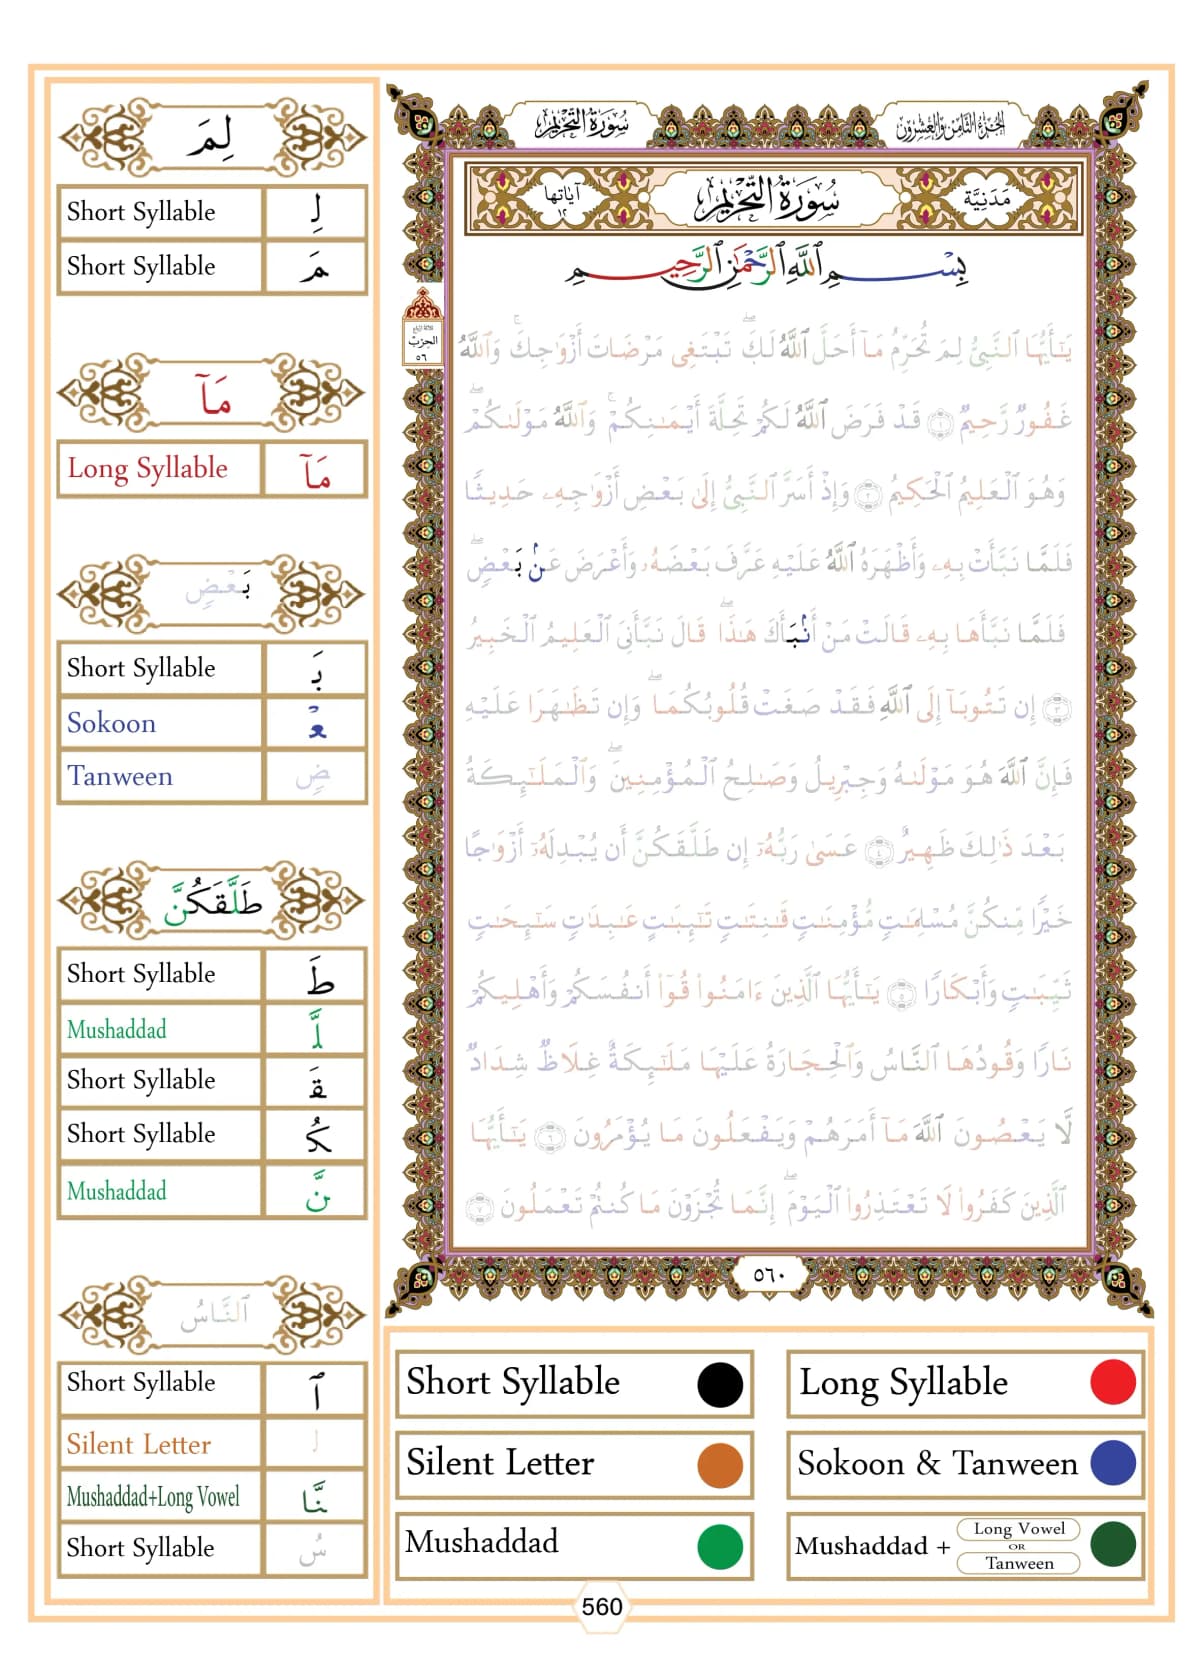 سُورَةُ التَّحْرِيمِ
الجُزْءُ الثَّامِنُ وَالعِشْرُونَ
مَدَنِيَّة
سُورَةُ التَّحْرِيمِ
آيَاتُهَا
١٢
بِسْمِ ٱللَّهِ ٱلرَّحْمَٰنِ ٱلرَّحِيمِ
الحِزْبُ
٥٦
يَٰٓأَيُّهَا ٱلنَّبِىُّ لِمَ تُحَرِّمُ مَآ أَحَلَّ ٱللَّهُ لَكَ ۖ تَبْتَغِى مَرْضَاتَ أَزْوَٰجِكَ ۚ وَٱللَّهُ
غَفُورٌ رَّحِيمٌ ١ قَدْ فَرَضَ ٱللَّهُ لَكُمْ تَحِلَّةَ أَيْمَٰنِكُمْ ۚ وَٱللَّهُ مَوْلَىٰكُمْ ۖ
وَهُوَ ٱلْعَلِيمُ ٱلْحَكِيمُ ٢ وَإِذْ أَسَرَّ ٱلنَّبِىُّ إِلَىٰ بَعْضِ أَزْوَٰجِهِۦ حَدِيثًا
فَلَمَّا نَبَّأَتْ بِهِۦ وَأَظْهَرَهُ ٱللَّهُ عَلَيْهِ عَرَّفَ بَعْضَهُۥ وَأَعْرَضَ عَنۢ بَعْضٍ ۖ
فَلَمَّا نَبَّأَهَا بِهِۦ قَالَتْ مَنْ أَنۢبَأَكَ هَٰذَا ۖ قَالَ نَبَّأَنِىَ ٱلْعَلِيمُ ٱلْخَبِيرُ
٣ إِن تَتُوبَآ إِلَى ٱللَّهِ فَقَدْ صَغَتْ قُلُوبُكُمَا ۖ وَإِن تَظَٰهَرَا عَلَيْهِ
فَإِنَّ ٱللَّهَ هُوَ مَوْلَىٰهُ وَجِبْرِيلُ وَصَٰلِحُ ٱلْمُؤْمِنِينَ ۖ وَٱلْمَلَٰٓئِكَةُ
بَعْدَ ذَٰلِكَ ظَهِيرٌ ٤ عَسَىٰ رَبُّهُۥٓ إِن طَلَّقَكُنَّ أَن يُبْدِلَهُۥٓ أَزْوَٰجًا
خَيْرًا مِّنكُنَّ مُسْلِمَٰتٍ مُّؤْمِنَٰتٍ قَٰنِتَٰتٍ تَٰٓئِبَٰتٍ عَٰبِدَٰتٍ سَٰٓئِحَٰتٍ
ثَيِّبَٰتٍ وَأَبْكَارًا ٥ يَٰٓأَيُّهَا ٱلَّذِينَ ءَامَنُوا۟ قُوٓا۟ أَنفُسَكُمْ وَأَهْلِيكُمْ
نَارًا وَقُودُهَا ٱلنَّاسُ وَٱلْحِجَارَةُ عَلَيْهَا مَلَٰٓئِكَةٌ غِلَاظٌ شِدَادٌ
لَّا يَعْصُونَ ٱللَّهَ مَآ أَمَرَهُمْ وَيَفْعَلُونَ مَا يُؤْمَرُونَ ٦ يَٰٓأَيُّهَا
ٱلَّذِينَ كَفَرُوا۟ لَا تَعْتَذِرُوا۟ ٱلْيَوْمَ ۖ إِنَّمَا تُجْزَوْنَ مَا كُنتُمْ تَعْمَلُونَ ٧
٥٦٠
لِمَ
Short Syllable لِ
Short Syllable مَ
مَآ
Long Syllable مَآ
بَعْضٍ
Short Syllable بَ
Sokoon عْ
Tanween ضٍ
طَلَّقَكُنَّ
Short Syllable طَ
Mushaddad لَّ
Short Syllable قَ
Short Syllable كُ
Mushaddad نَّ
ٱلنَّاسُ
Short Syllable ٱ
Silent Letter ل
Mushaddad+Long Vowel نَّا
Short Syllable سُ
Short Syllable
Long Syllable
Silent Letter
Sokoon & Tanween
Mushaddad
Mushaddad + Long Vowel
OR
Tanween
560